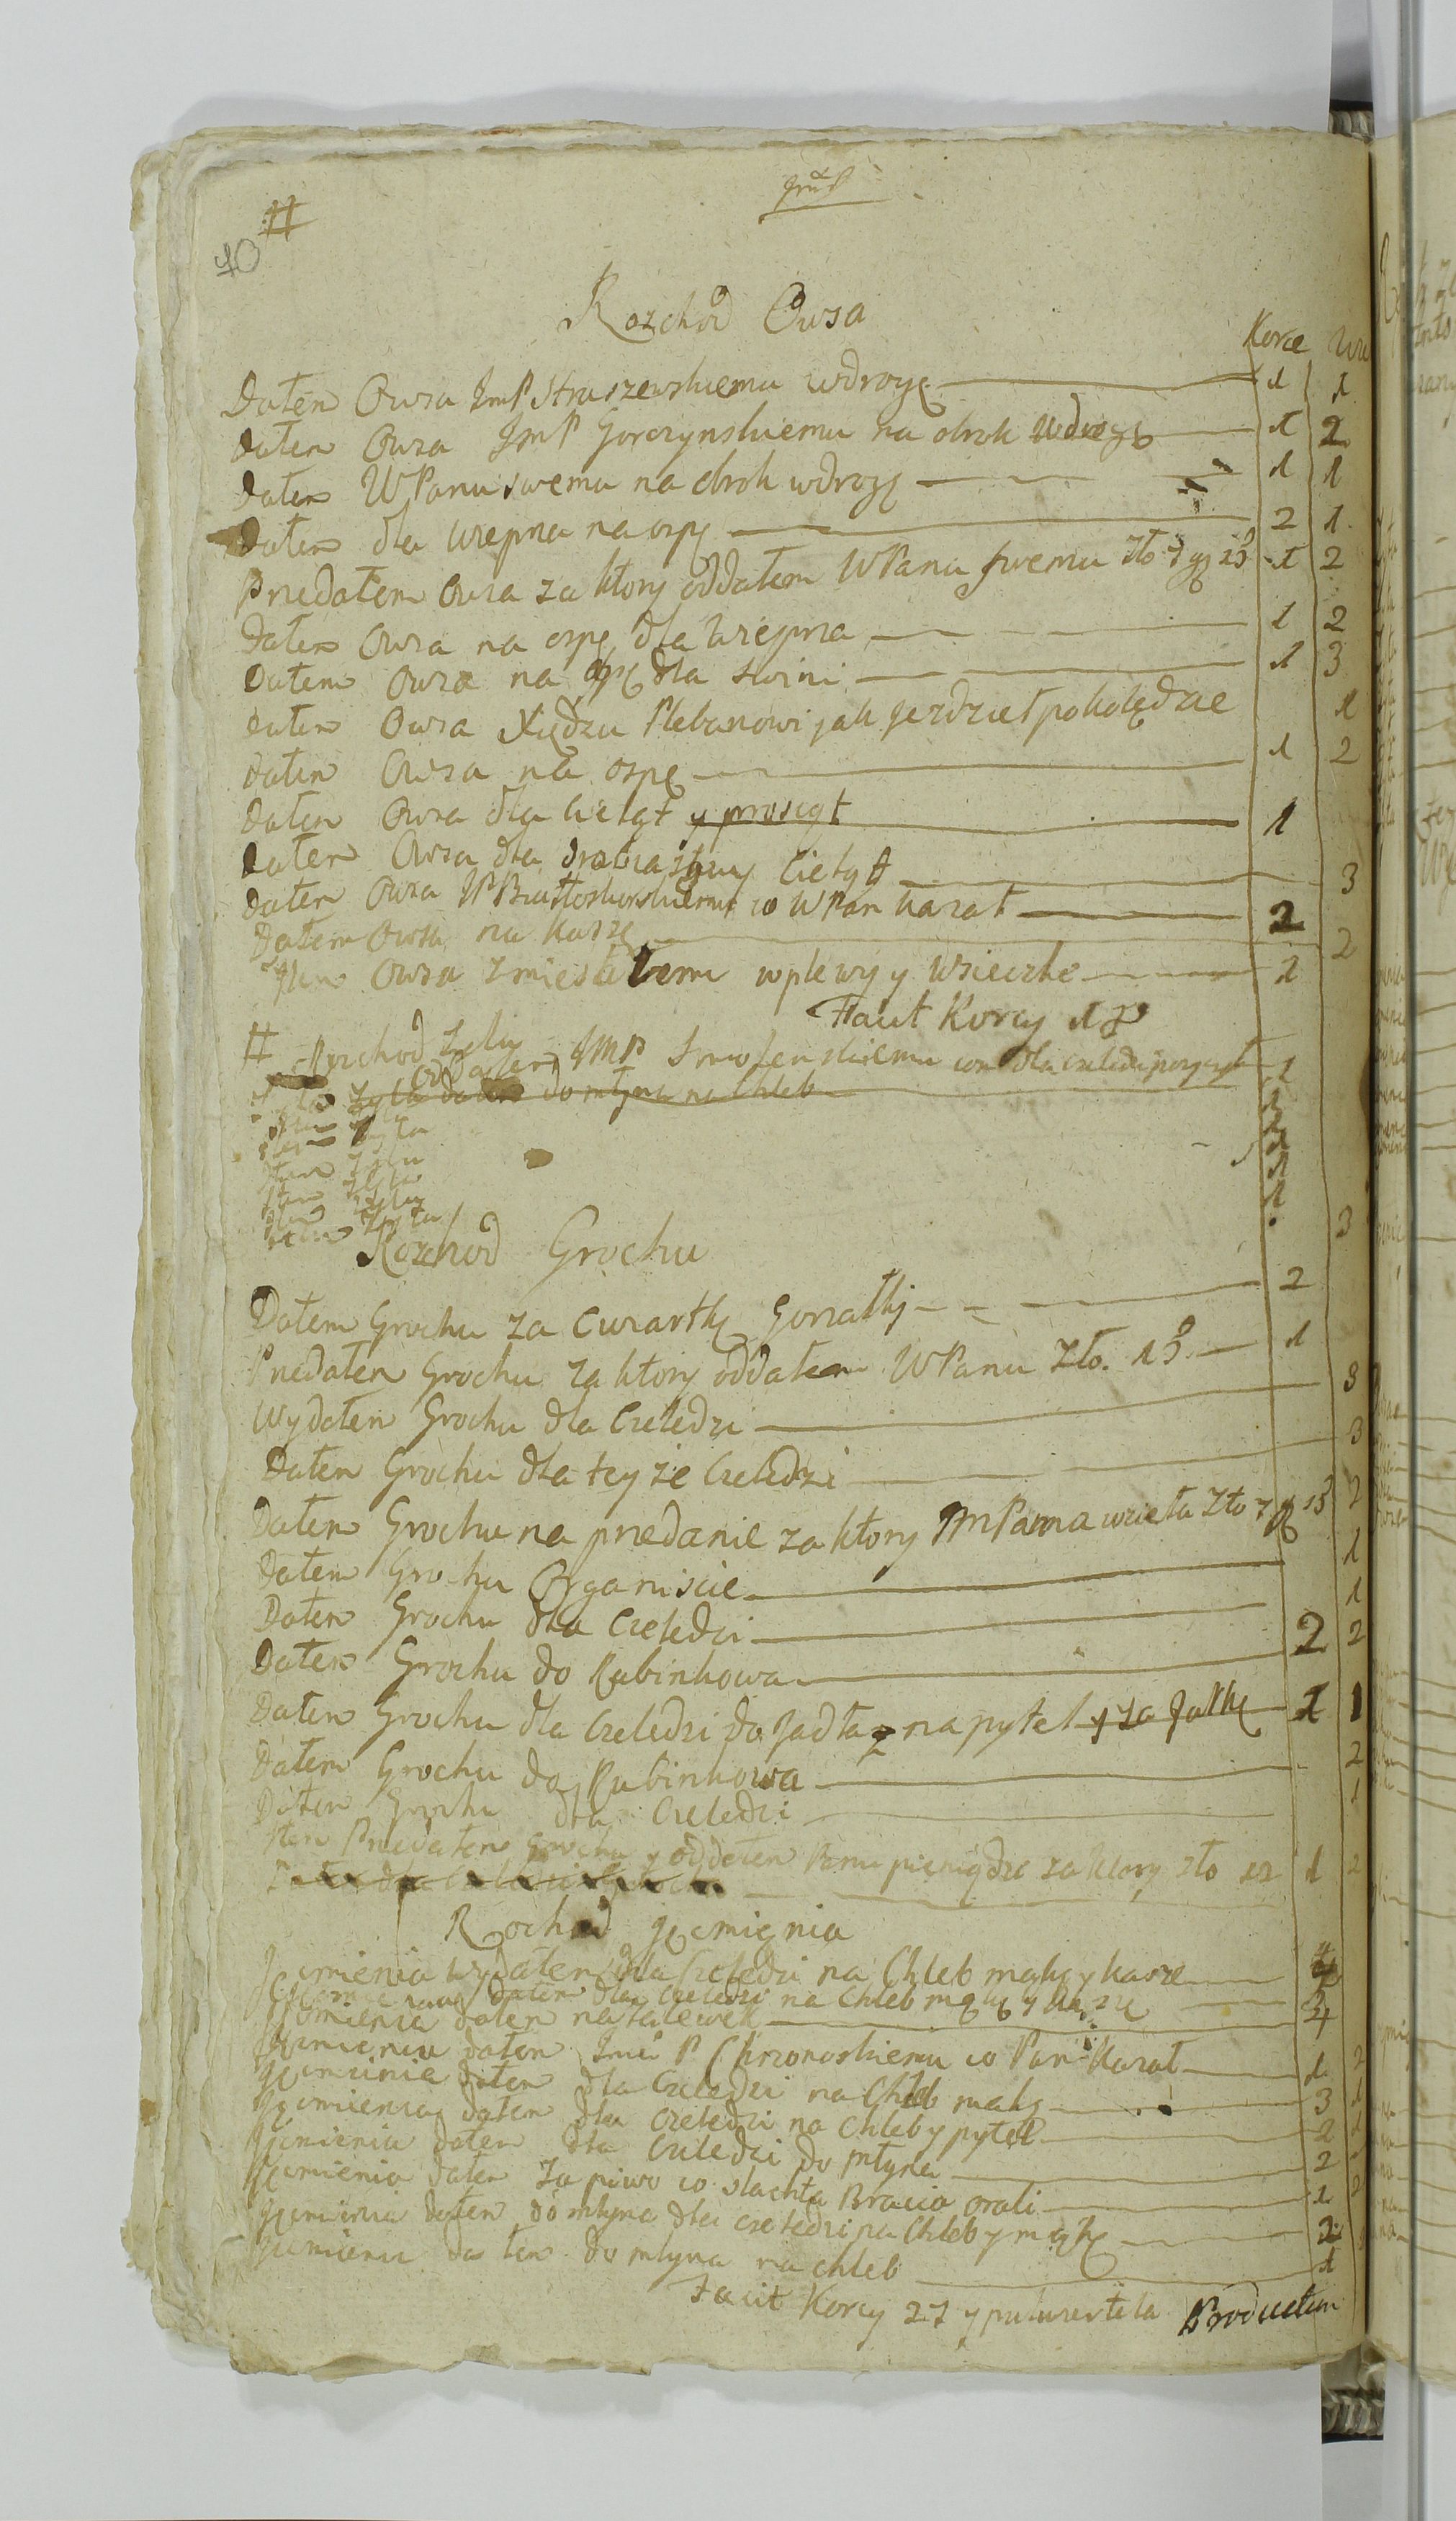 #
40
Rozchod Owsa
Korce
Dałem Owsa ImP Straszewskiemu wdrogę 1 1
dałem Owsa ImP Gorczynskiemu na obrok wdrogę 1 2
dałem WPanu swemu na obrok wdrogę 1 1
dałem dla Wiepna na ospę 2 1
Przedałem Owsa za ktory oddałem WPanu swemu Zło 7 gr 15 1 2
Dałem Owsa na ospę dla Wiepna 1 2
Dałem Owsa na ospę dla swini 1 3
dałem Owsa Xiędzu Plebanowi jak jezdzieł pokolędzie 1
dałem Owsa na ospę 1 2
dałem Owsa dla Cieląt y prosiąt 1
dałem Owsa dla Cieląt 3
dałem Owsa co WPan kazał 2
Dałem Owsa na kaszę 2
Item Owsa zmiesałem wplewy y Wsieczke 1
Facit Korcy
# Rozchod Zyta
oddałem JMP Smolenskiemu com dla czeledzi pozyczył 1
Zyta dałem do młyna na Chleb
Item Zyta
Item Zyta
Item Zyta
Item Zyta
Item Zyta 3
Rozchod Grochu
Dałem Grochu za Cwartkę Gorzałki 2
Przedałem Grochu za ktory oddałem WPanu Zło. 15 1
Wydałem Grochu dla Czeledzi 3
Dałem Grochu dla tey ze Czeledzi 3
Dałem Grochu na przedanie za ktory JmPanna wzieła Zło 7 gr 15 2
Dałem Grochu Organiscie 1
Dałem Grochu dla Czeledzi 1
Dałem Grochu do Rubinkowa 2 2
Dałem Grochu dla Czeledzi do Jadła na pytel y za Jałkę 1 1
Dałem Grochu do Rubinkowa 2
Dałem Grochu dla Czeledzi 1
Item Przedałem Grochu y oddałem Panu pieniądze za ktory zło 12 1 2
Rochod jęcmięnia
Jęcmienia wydałem dla Czeledzi na Chleb mąkę y kasze
Jęcmienia dałem dla Czeledzi na Chleb mąkę y kaszę 3
Jęcmienia dałem na zalewek 4
Jęcmienia dałem Jmci P Chrzonoskiemu co Pan Kazał 1 2
Jęcmienia dałem dla Czeledzi na Chleb mąkę 3 1
Jęcmienia dałem dla Czeledzi na Chleb y pytel 2 1
Jęcmienia dałem dla Czeledzi do młyna 2
Jęcmienia dałem za piwo co slachta Bracia orali 1 2
Jęcmienia dałem do młyna dla czeledzi na Chleb y mąkę 2
Jęcmienia dałem do młyna na chleb 1
Facit Korcy 27 y pułwiertela Productum